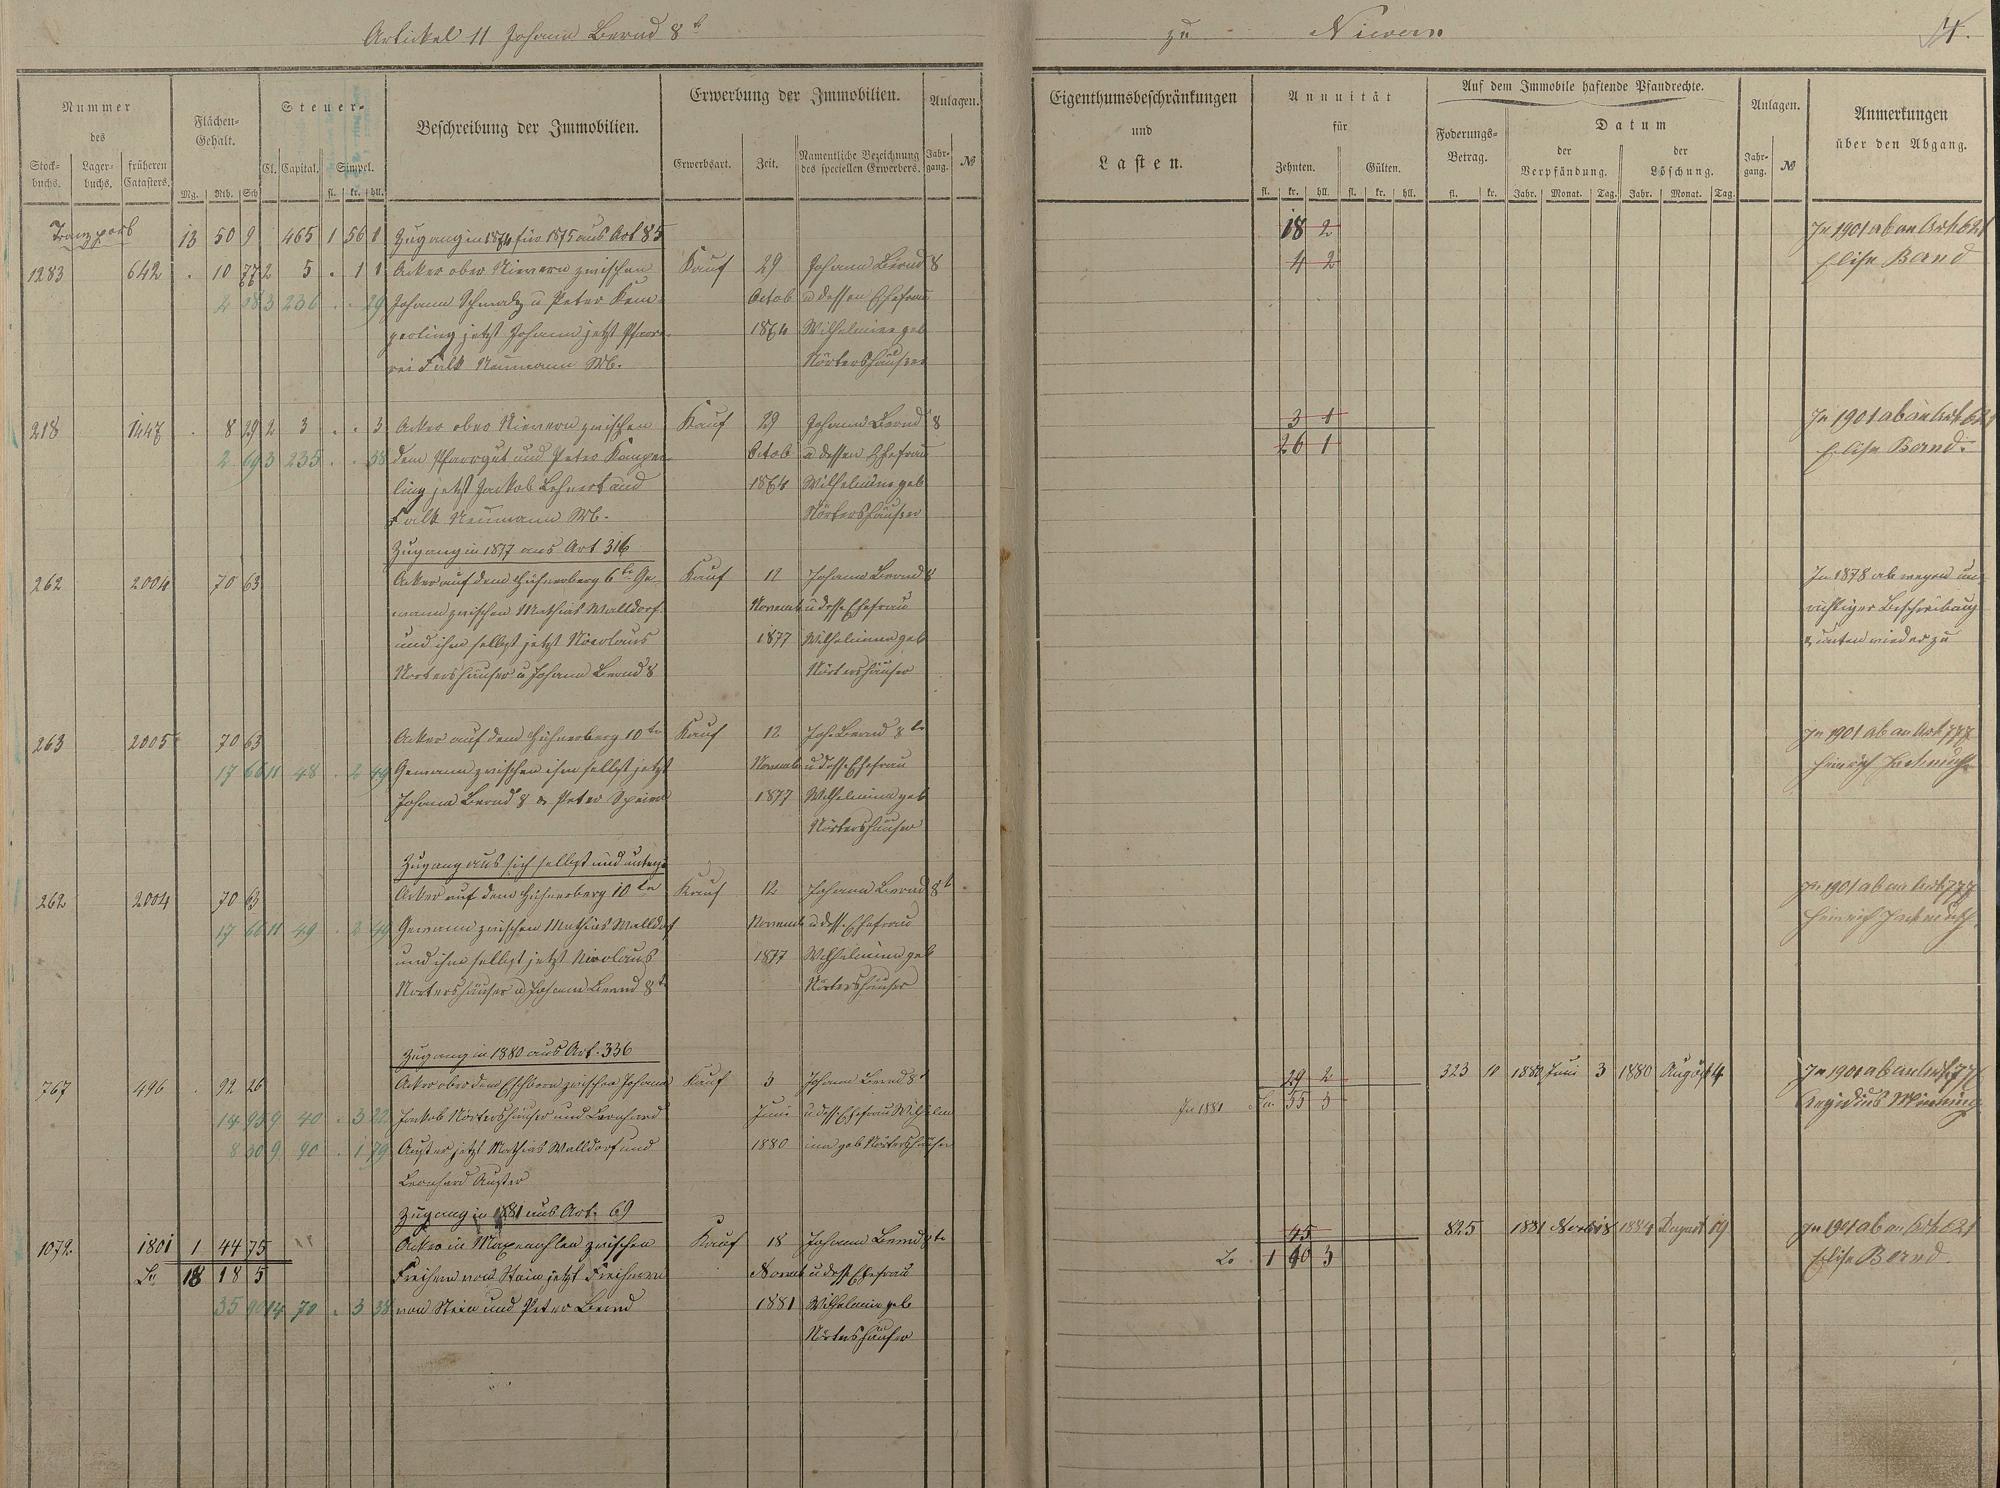 Artickel 11 Johann Bernd 8t
zu Nievern
Nummer des
Stockbuchs. Lagerbuchs. früheren Catasters.
Flächen-Gehalt.
Mg. Rth. Sch
Steuer-
Cl. Capital. Simpel.
fl. kr. hll.
Beschreibung der Immobilien.
Erwerbung der Immobilien.
Erwerbsart. Zeit. Namentliche Bezeichnung des speciellen Erwerbers.
Anlagen.
Jahrgang. №
Eigenthumsbeschränkungen
und
Lasten.
Annuität
für
Zehnten. Gülten.
fl. kr. hll. fl. kr. hll.
Auf dem Immobile haftende Pfandrechte.
Foderungs-Betrag.
fl. kr.
Datum
der Verpfändung. der Löschung.
Jahr. Monat. Tag. Jahr. Monat. Tag.
Anlagen.
Jahrgang. №
Anmerkungen
über den Abgang.
Transport 13 50 9 465 1 56 1 Zugang in 1874 für 1875 aus Art 85 18 2 In 1901 ab an Art. 621
1283 642 . 10 77 2 5 . 1 1 Acker ober Nievern zwischen Kauf 29 Johann Bernd 8 4 2 Elise Bernd
3 236 . . 29 Johann Schmalz u Peter Kem- Octob u dessen Ehefrau
perling jetzt Johann jetzt Pfar- 1874 Wilhelmine geb
rei Falk Neumann Wb. Nörtershäuser
218 1447 . 8 29 2 3 . . 3 Acker ober Nievern zwischen Kauf 29 Johann Bernd 8 3 1 In 1901 ab an Art. 621
2 69 3 235 . . 58 dem Pfarrgut und Peter Kemper- Octob u dessen Ehefrau 26 1 Elise Bernd.
ling jetzt Jackob Lehnert und 1874 Wilhelmine geb
Falk Neumann Wb. Nörtershäuser
Zugang in 1877 aus Art 316
262 2004 70 63 Acker auf dem Hühnerberg 6te Ge- Kauf 12 Johann Bernd 8 In 1878 ab wegen un-
wann zwischen Mathias Walldorf Novemb u dess Ehefrau richtiger Beschreibung
und ihm selbst jetzt Nicolaus 1877 Wilhelmine geb & unten wieder zu
Nörtershäuser u Johann Bernd 8 Nörtershäuser
263 2005 70 63 Acker auf dem Hühnerberg 10te Kauf 12 Joh Bernd 8te In 1901 ab an Art. 777
17 66 11 48 . 2 49 Gewann zwischen ihm selbst jetzt Novemb u dess Ehefrau Heinrich
Johann Bernd 8 & Peter Speier 1877 Wilhelmine geb
Nörtershäuser
Zugang aus sich selbst und unten
262 2004 70 63 Acker auf dem Hühnerberg 10te Kauf 12 Johann Bernd 8t In 1901 ab an Art. 777
17 66 11 49 . 2 49 Gewann zwischen Mathias Walldorf Novemb u dess. Ehefrau Heinrich
und ihm selbst jetzt Nicolaus 1877 Wilhelmine geb
Nörtershäuser u Johann Bernd 8te Nörtershäuser
Zugang in 1880 aus Art. 336
767 496 . 92 26 Acker ober dem Eschborn zwischen Johann Kauf 3 Johann Bernd 8t 29 2 323 10 1880 Juni 3 1880 August 4 In 1901 ab an Art.
14 95 9 40 . 3 22 Jackob Nörtershäuser und Bernhard Juni u dess Ehefrau Wilhelm In 1881 55 3 Aegidius
8 30 9 90 . 1 79 Auster jetzt Mathias Walldorf und 1880 ina geb Nörtershäuser
Bernhard Auster
Zugang in 1881 aus Art. 69
1072. 1801 1 44 75 Acker in zwischen Kauf 18 Johann Bernd 8te 45 825 1881 Novb 18 1884 August 19 In 1901 ab an Art. 621
18 18 5 Freiherr von Stein jetzt Freiherrn Novmb u dess Ehefrau 1 40 3 Elise Bernd.
35 90 14 70 . 3 38 von Stein und Peter Bernd 1881 Wilhelmine geb
Nörtershäuser